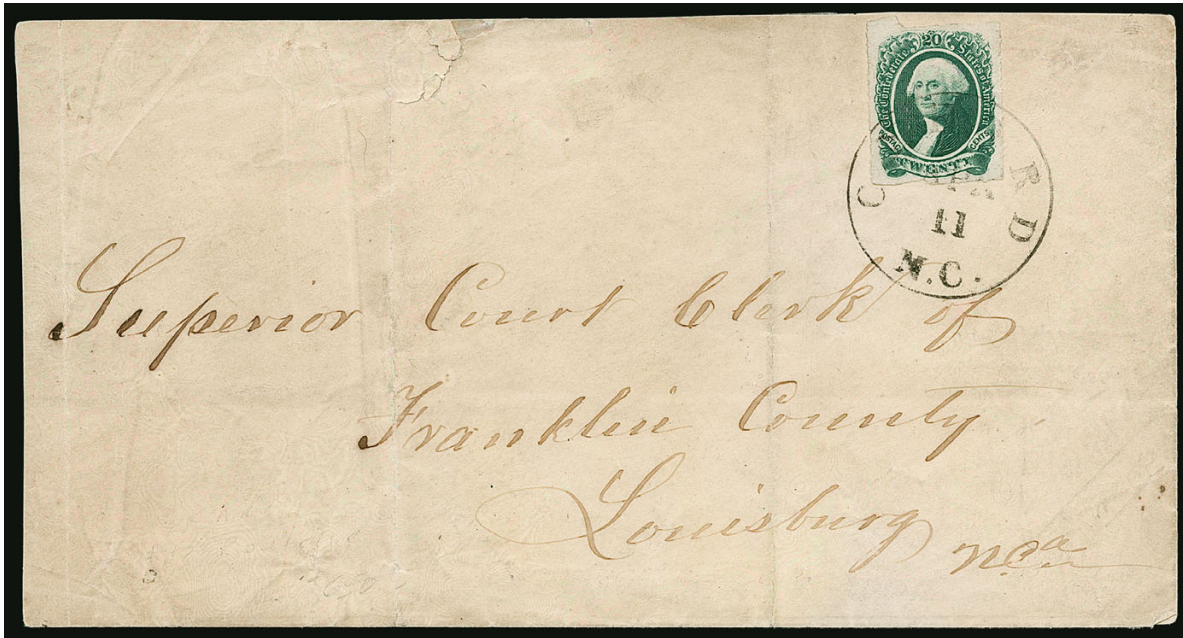 20
The Confederate States of America
POSTAGE CENTS
TWENTY
RD
11
N.C.
Superior Court Clerk of
Franklin County
Louisburg
N.Ca